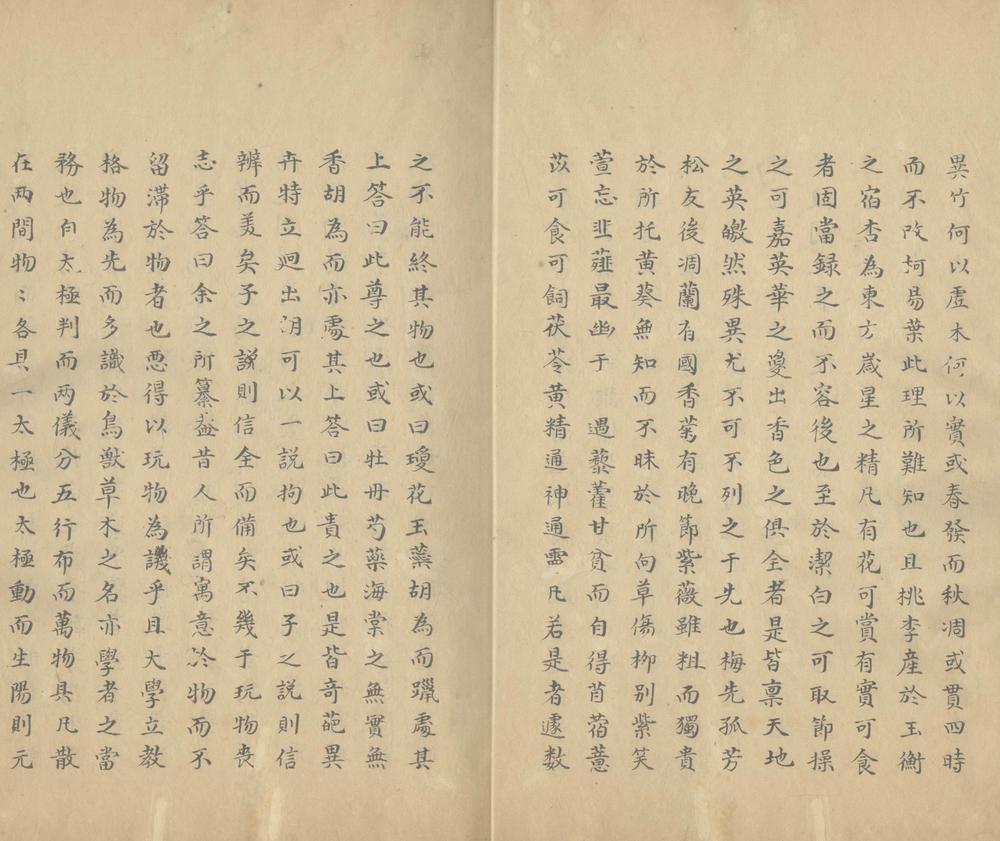 異竹何以虛木何以實或春發而秋凋或貫四時
而不改柯易葉此理所難知也且桃李產於玉衡
之宿杏為東方歲星之精凡有花可賞有實可食
者固當録之而不容後也至於潔白之可取節操
之可嘉英華之夐出香色之俱全者是皆稟天地
之英皦然殊異尤不可不列之于先也梅先孤芳
松友後凋蘭有國香菊有晚節紫薇雖粗而獨貴
於所托黄葵無知而不昧於所向草傷柳别紫笑
萱忘韭薤最幽于 遇藜藿甘貧而自得苜蓿薏
苡可食可飼茯苓黄精通神通靈凡若是者遽数
之不能終其物也或曰瓊花玉蘂胡為而躐處其
上答曰此尊之也或曰牡丹芍藥海棠之無實無
香胡為而亦處其上答曰此貴之也是皆奇葩異
卉特立迥出胡可以一説拘也或曰子之説則信
辨而美矣子之説則信全而備矣不幾于玩物丧
志乎答曰余之所纂葢昔人所謂寓意於物而不
留滯於物者也惡得以玩物為譏乎且大學立教
格物為先而多識於鳥獸草木之名亦學者之當
務也自太極判而兩儀分五行布而萬物具凡散
在兩間物〻各具一太極也太極動而生陽則元